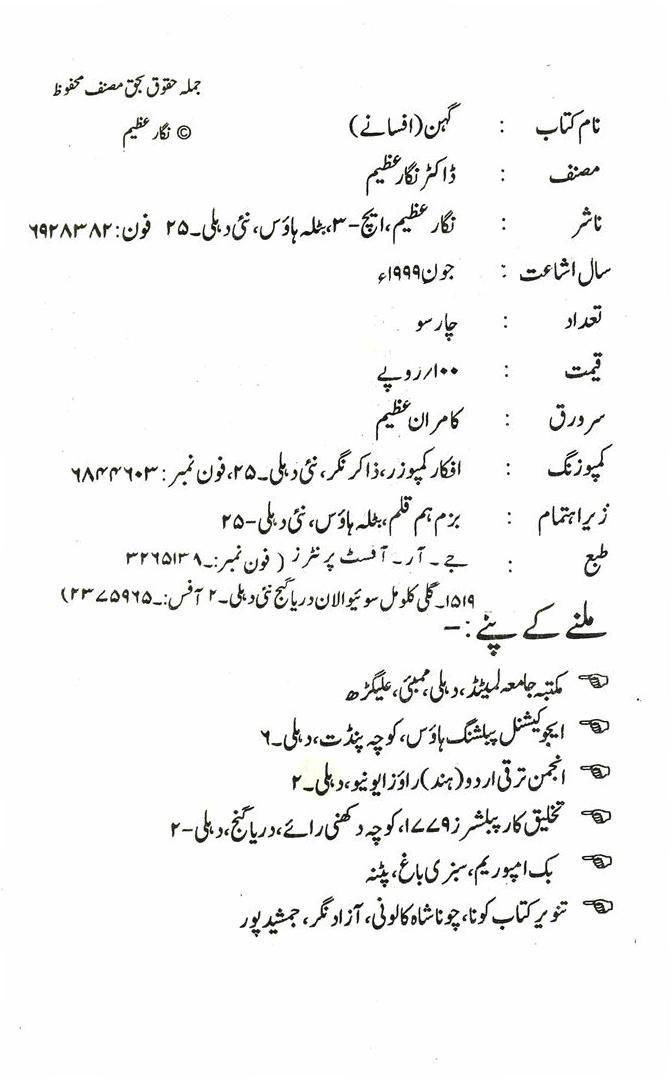 جملہ حقوق بحق مصنف محفوظ
© نگار عظیم
نام کتاب : گہن (افسانے)
مصنف : ڈاکٹر نگار عظیم
ناشر : نگار عظیم، ایچ-۳، بٹلہ ہاؤس، نئی دہلی۔۲۵ فون: ۶۹۲۸۳۸۲
سال اشاعت : جون ۱۹۹۹ء
تعداد : چار سو
قیمت : ۱۰۰/روپے
سرورق : کامران عظیم
کمپوزنگ : افکار کمپوزر، ذاکر نگر، نئی دہلی۔۲۵، فون نمبر: ۶۸۴۴۶۰۳
زیر اہتمام : بزم ہم قلم، بٹلہ ہاؤس، نئی دہلی-۲۵
طبع : جے۔ آر۔ آفسٹ پرنٹرز (فون نمبر:۔۳۲۶۵۱۳۸
۱۵۱۹۔ گلی کلومل سوئیوالان دریا گنج نئی دہلی۔۲ آفس:۔۲۳۷۵۹۶۵)
ملنے کے پتے :-
☜ مکتبہ جامعہ لمیٹڈ، دہلی، ممبئی، علیگڑھ
☜ ایجوکیشنل پبلشنگ ہاؤس، کوچہ پنڈت، دہلی۔۶
☜ انجمن ترقی اردو (ہند) راؤز ایونیو، دہلی۔۲
☜ تخلیق کار پبلشرز ۱۷۷۹، کوچہ دکھنی رائے، دریا گنج، دہلی-۲
☜ بک امپوریم، سبزی باغ، پٹنہ
☜ تنویر کتاب کونا، چونا شاہ کالونی، آزاد نگر، جمشید پور